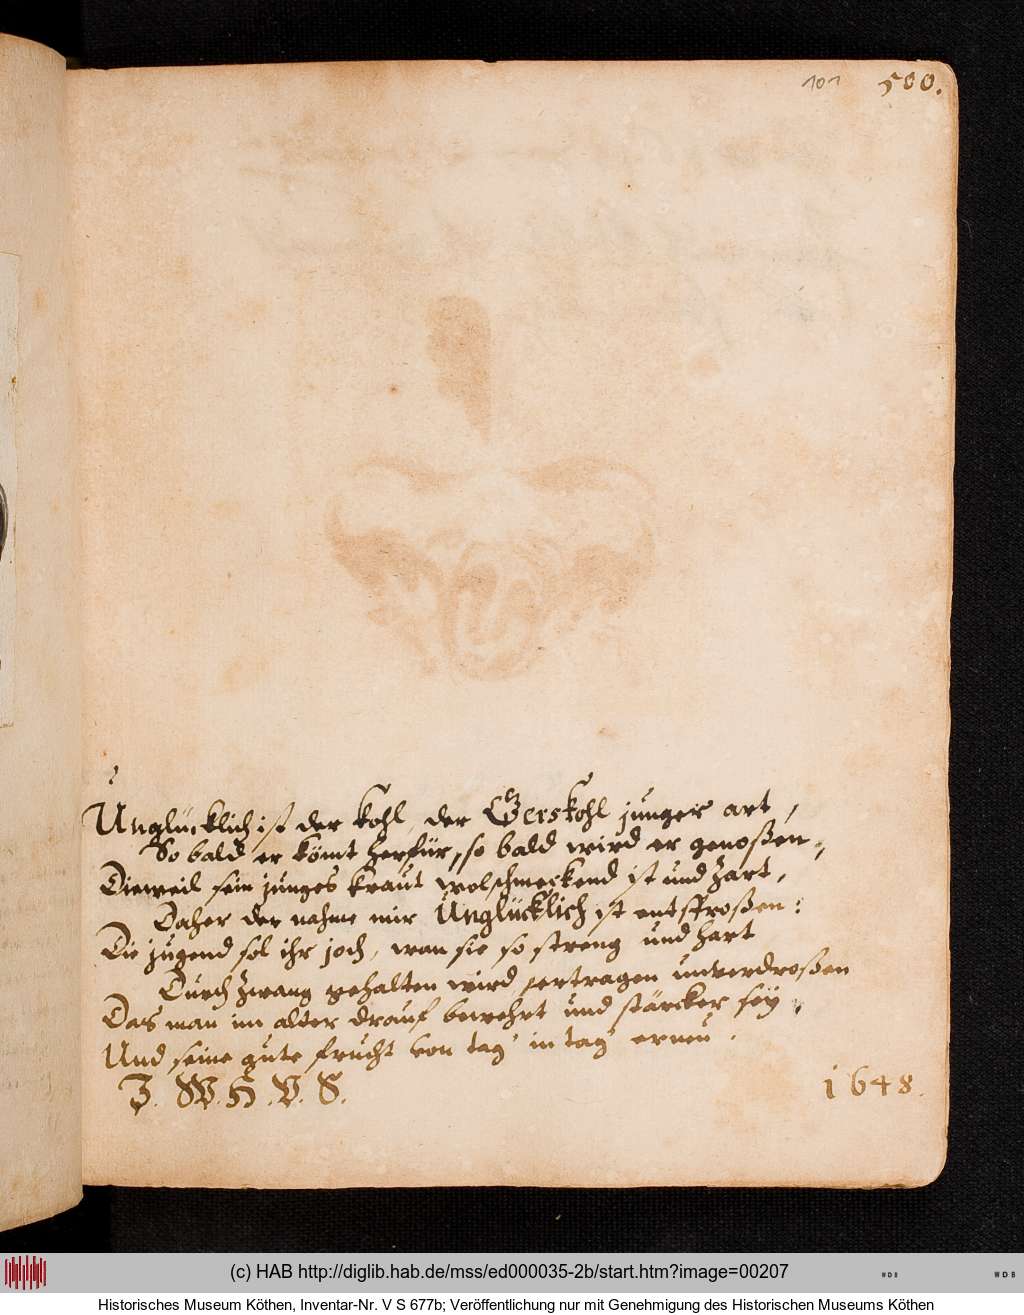 101 500.
Unglücklich ist der kohl, der Gerskohl junger art,
So bald er kömt herfür, so bald wird er genoßen,
Dieweil sein junges kraut wolschmeckend ist und zart,
Daher der nahme mir Unglücklich ist entsproßen:
Die jugend sol ihr joch, wan sie so streng und hart
Durch zwang gehalten wird, ertragen unverdroßen
Das man im alter drauf bewehrt und stärcker sey,
Und seine gute frucht von tag' in tag' erneu.
J. W. H. V. S. 1648.
(c) HAB http://diglib.hab.de/mss/ed000035-2b/start.htm?image=00207
WDB WDB
Historisches Museum Köthen, Inventar-Nr. V S 677b; Veröffentlichung nur mit Genehmigung des Historischen Museums Köthen